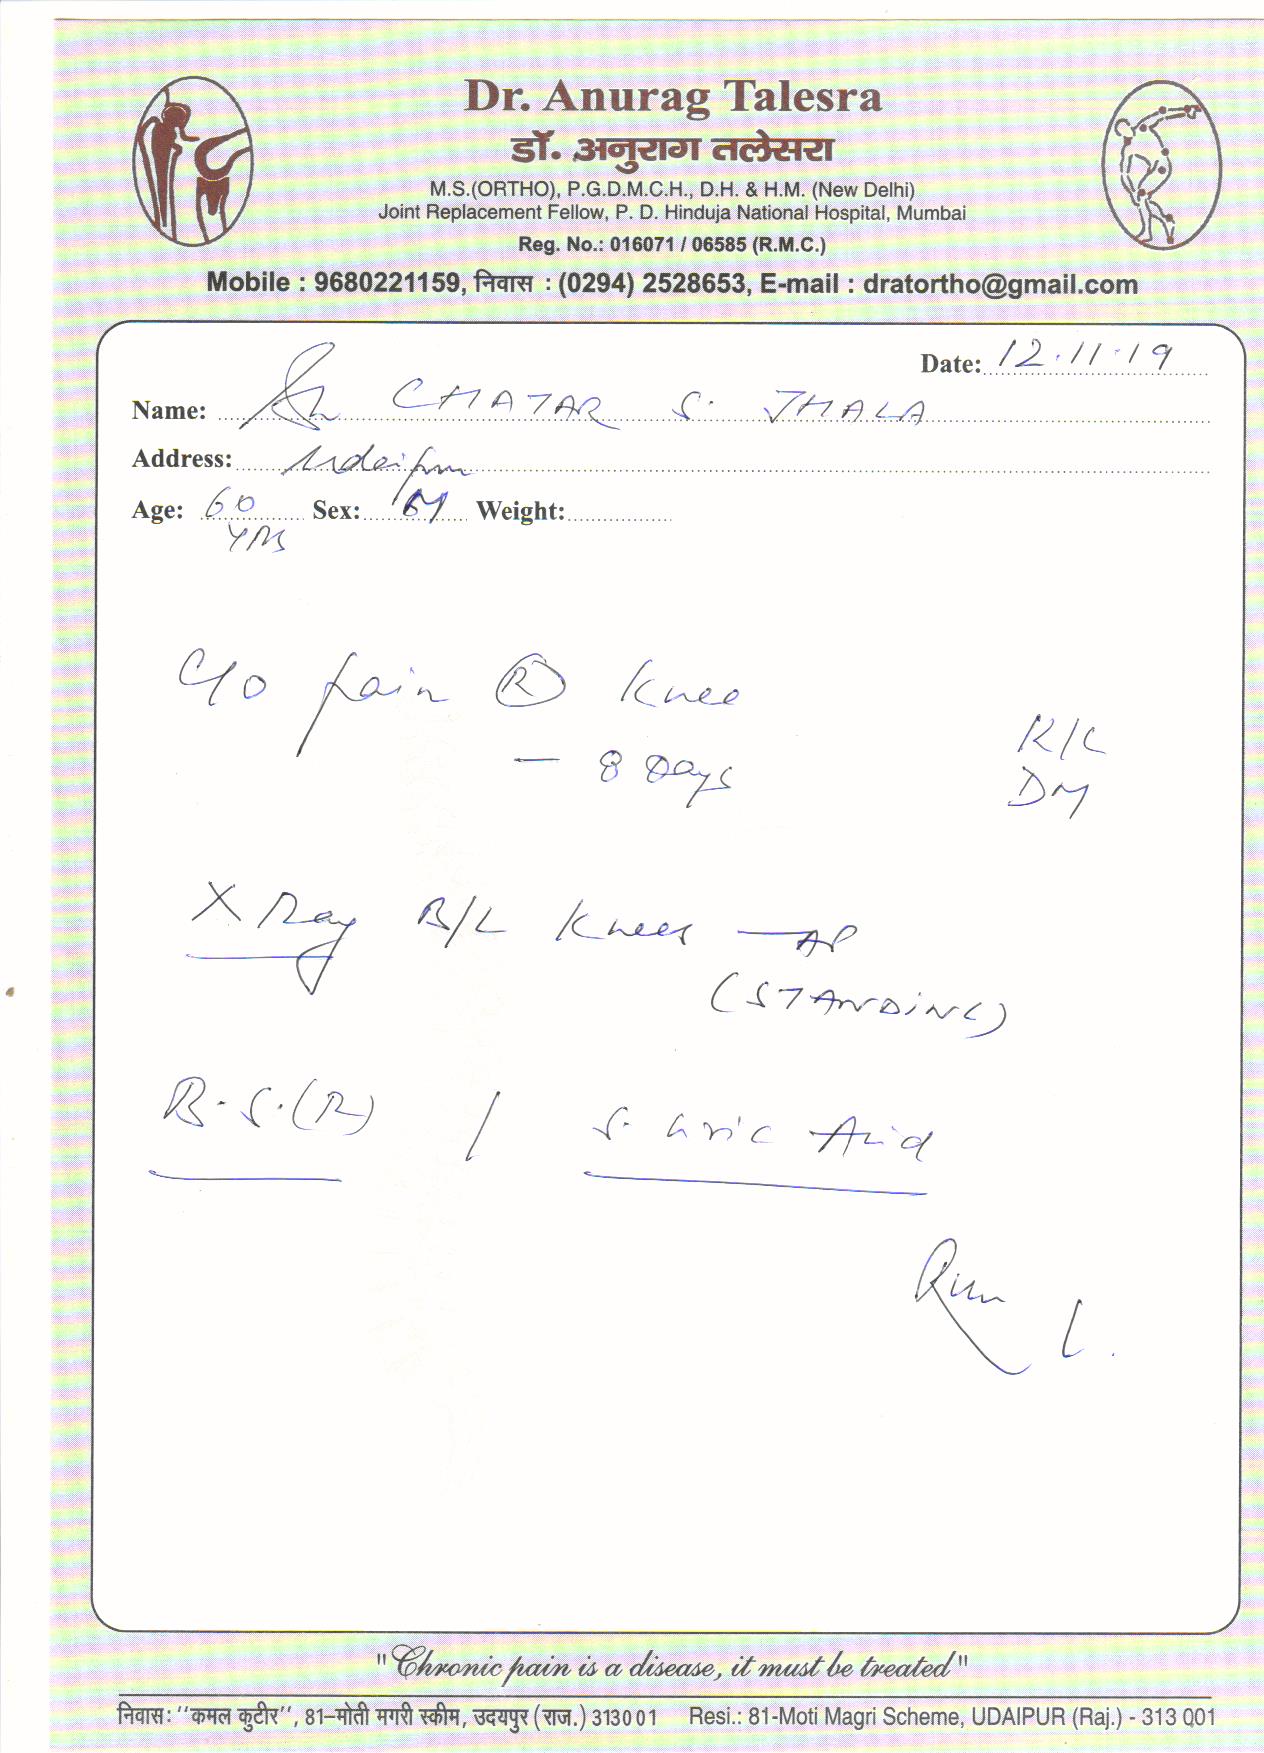 Dr. Anurag Talesra
डॉ. अनुराग तलेसरा
M.S.(ORTHO), P.G.D.M.C.H., D.H. & H.M. (New Delhi)
Joint Replacement Fellow, P. D. Hinduja National Hospital, Mumbai
Reg. No.: 016071 / 06585 (R.M.C.)
Mobile : 9680221159, निवास : (0294) 2528653, E-mail : dratortho@gmail.com
Date: 12.11.19
Name: Sh CHATAR S. JHALA
Address: Udaipur
Age: 60 Yrs Sex: M Weight:
C/o pain (R) Knee
- 8 Days
K/C
DM
X Ray B/L Knees - AP
(STANDING)
B.S.(R) / S. Uric Acid
"Chronic pain is a disease, it must be treated"
निवास: ''कमल कुटीर'', 81-मोती मगरी स्कीम, उदयपुर (राज.) 313001 Resi.: 81-Moti Magri Scheme, UDAIPUR (Raj.) - 313 001